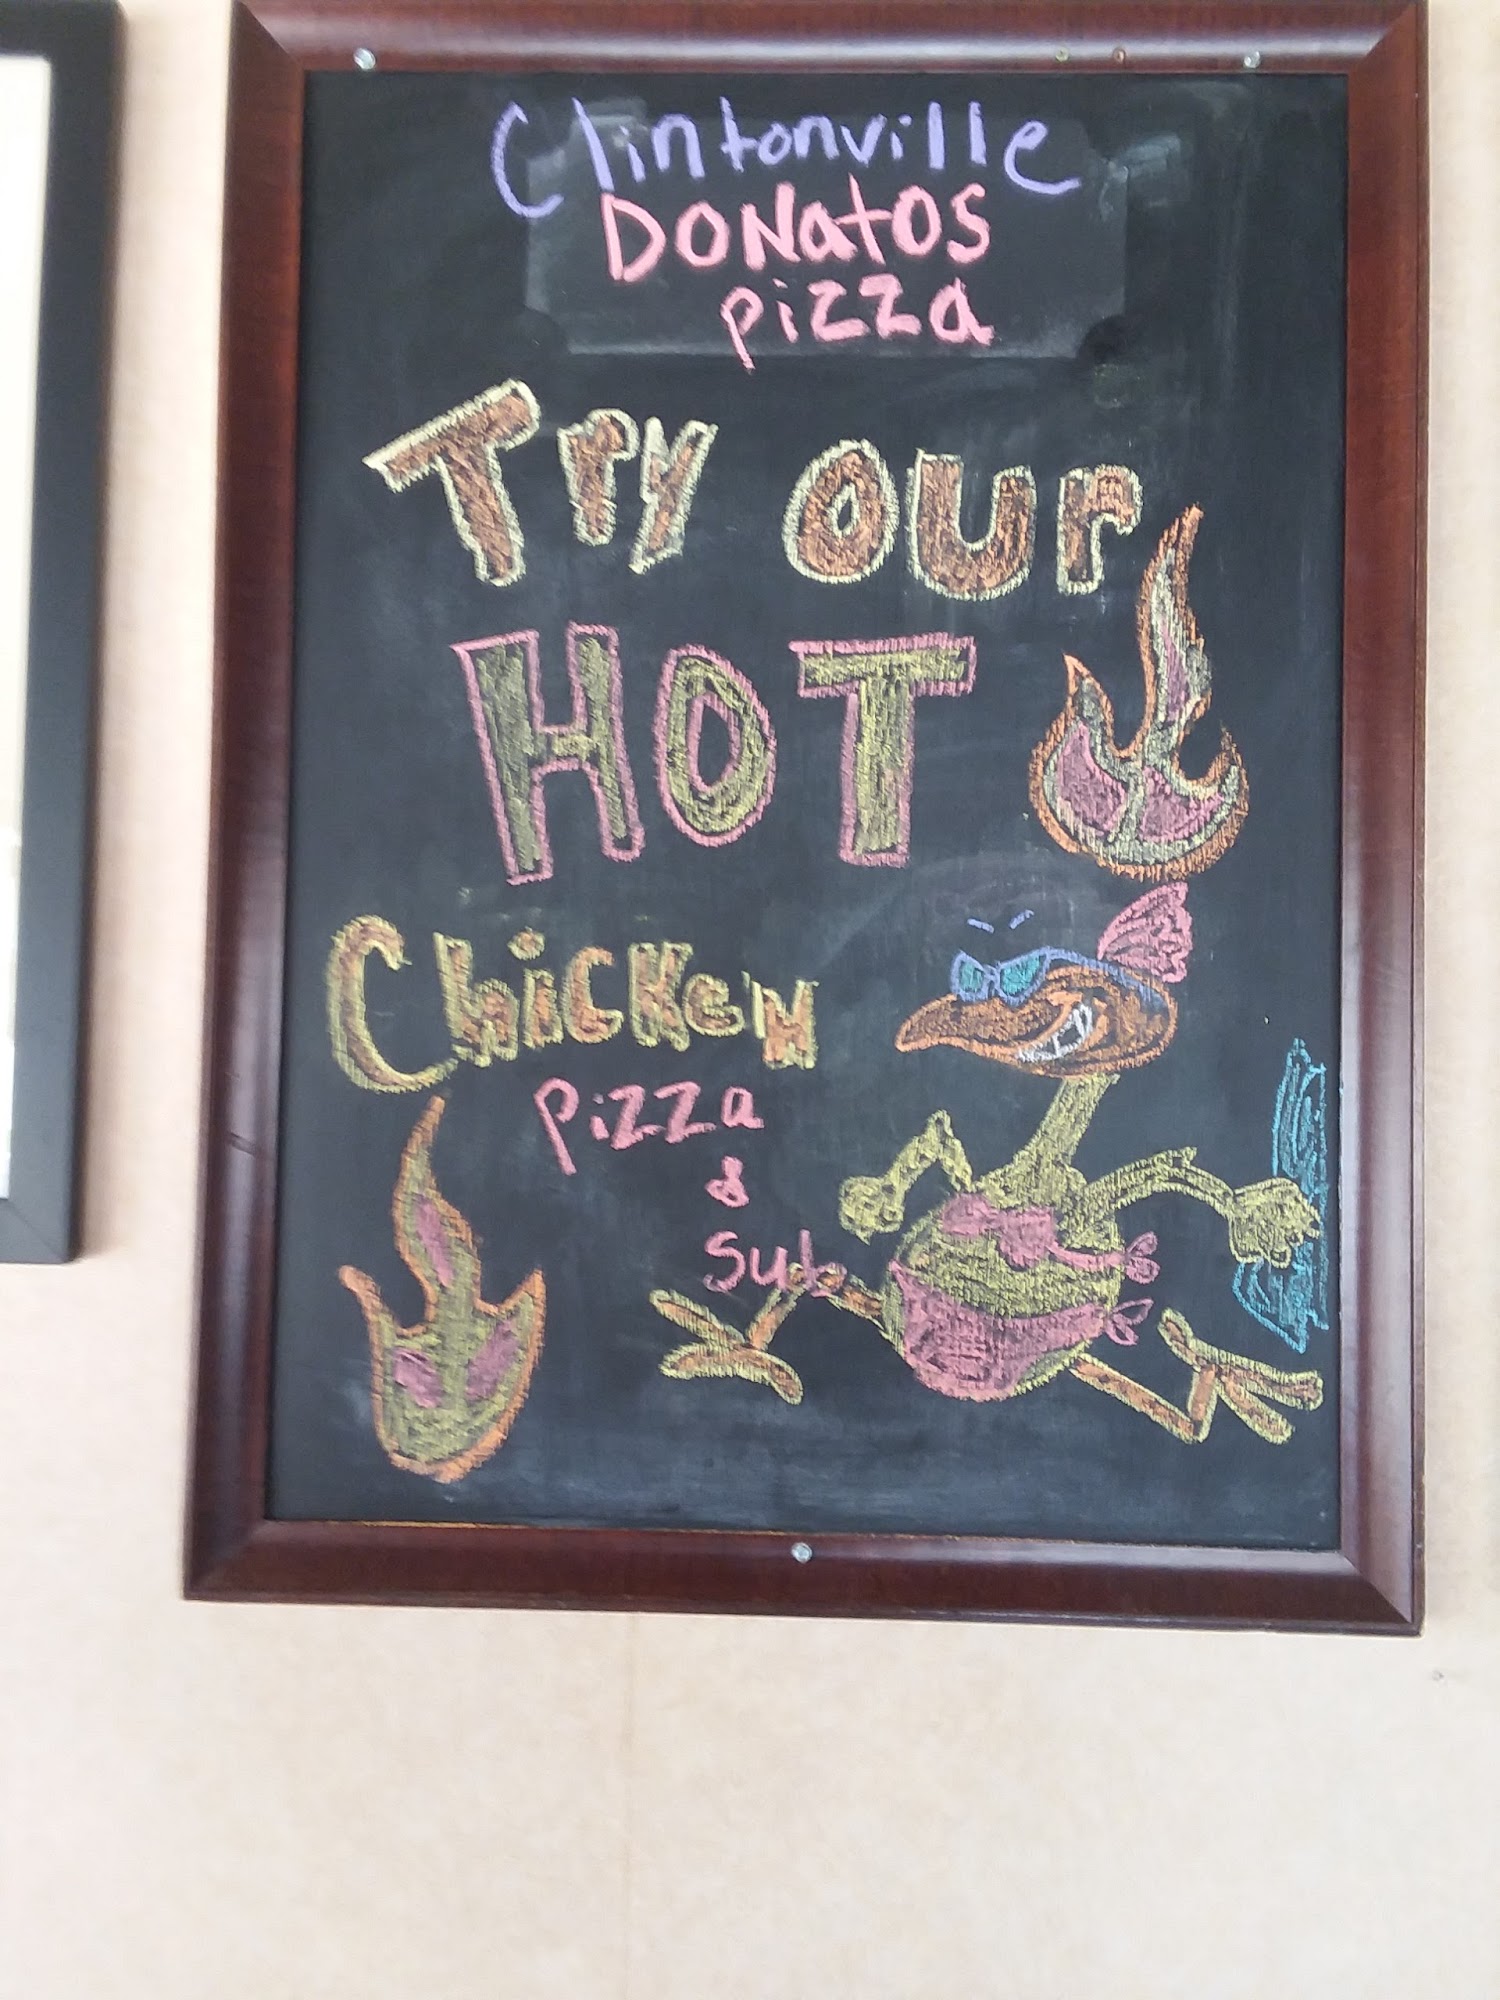 Clintonville
DONatOS
pizza
Try our
HOT
Chicken
pizza
&
Sub